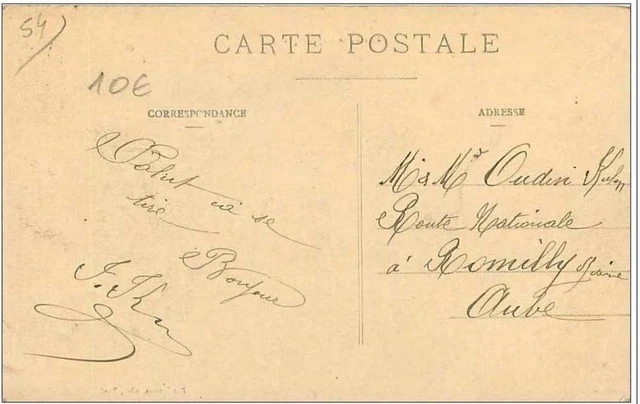 54
CARTE POSTALE
10€
CORRESPONDANCE
Salut ça se
tire
Bonjour
ADRESSE
M & Mᵈ Oudin
Route Nationale
à Romilly s/ Seine
Aube